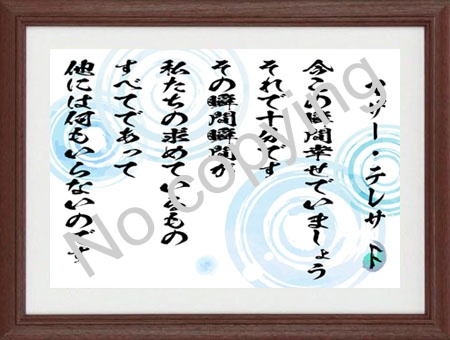 マザー・テレサ
今この瞬間幸せでいましょう
それで十分です
その瞬間瞬間が
私たちの求めているもの
すべてであって
他には何もいらないのです
No copying